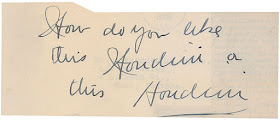 How do you like
this Houdini or
this Houdini